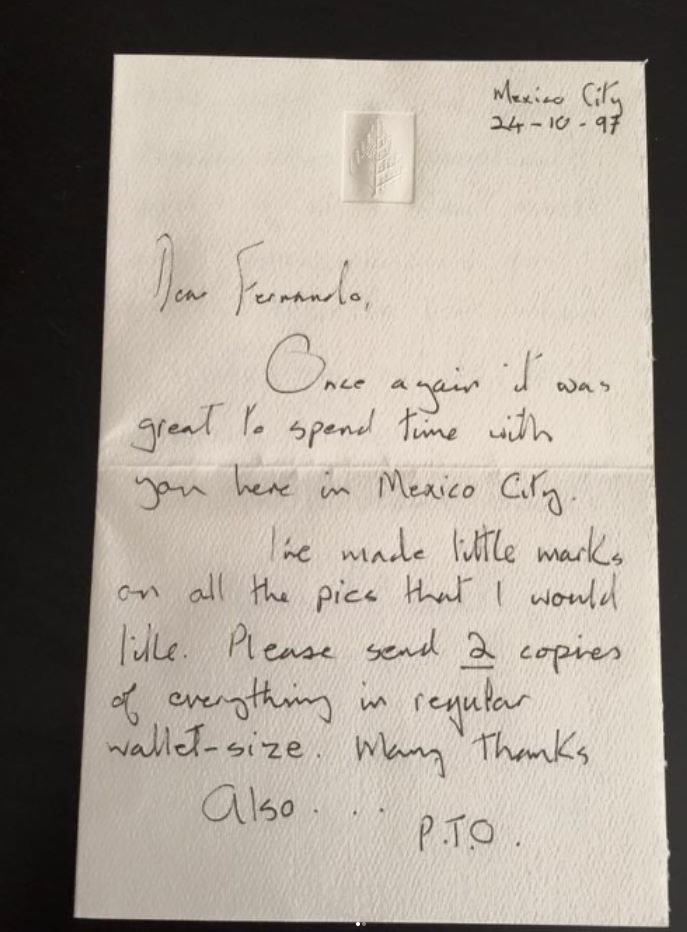 Mexico City
24-10-97
Dear Fernando,
Once again it was
great to spend time with
you here in Mexico City.
I've made little marks
on all the pics that I would
like. Please send 2 copies
of everything in regular
wallet-size. Many thanks
Also . . . .
P.T.O.